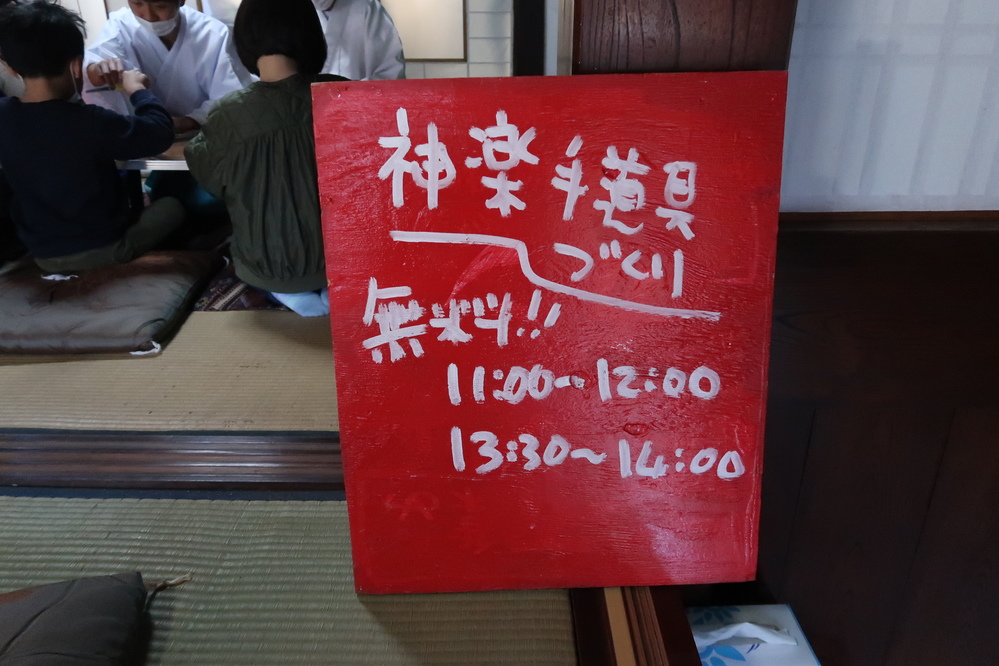 神楽手道具
づくり
無料!!
11:00~12:00
13:30~14:00